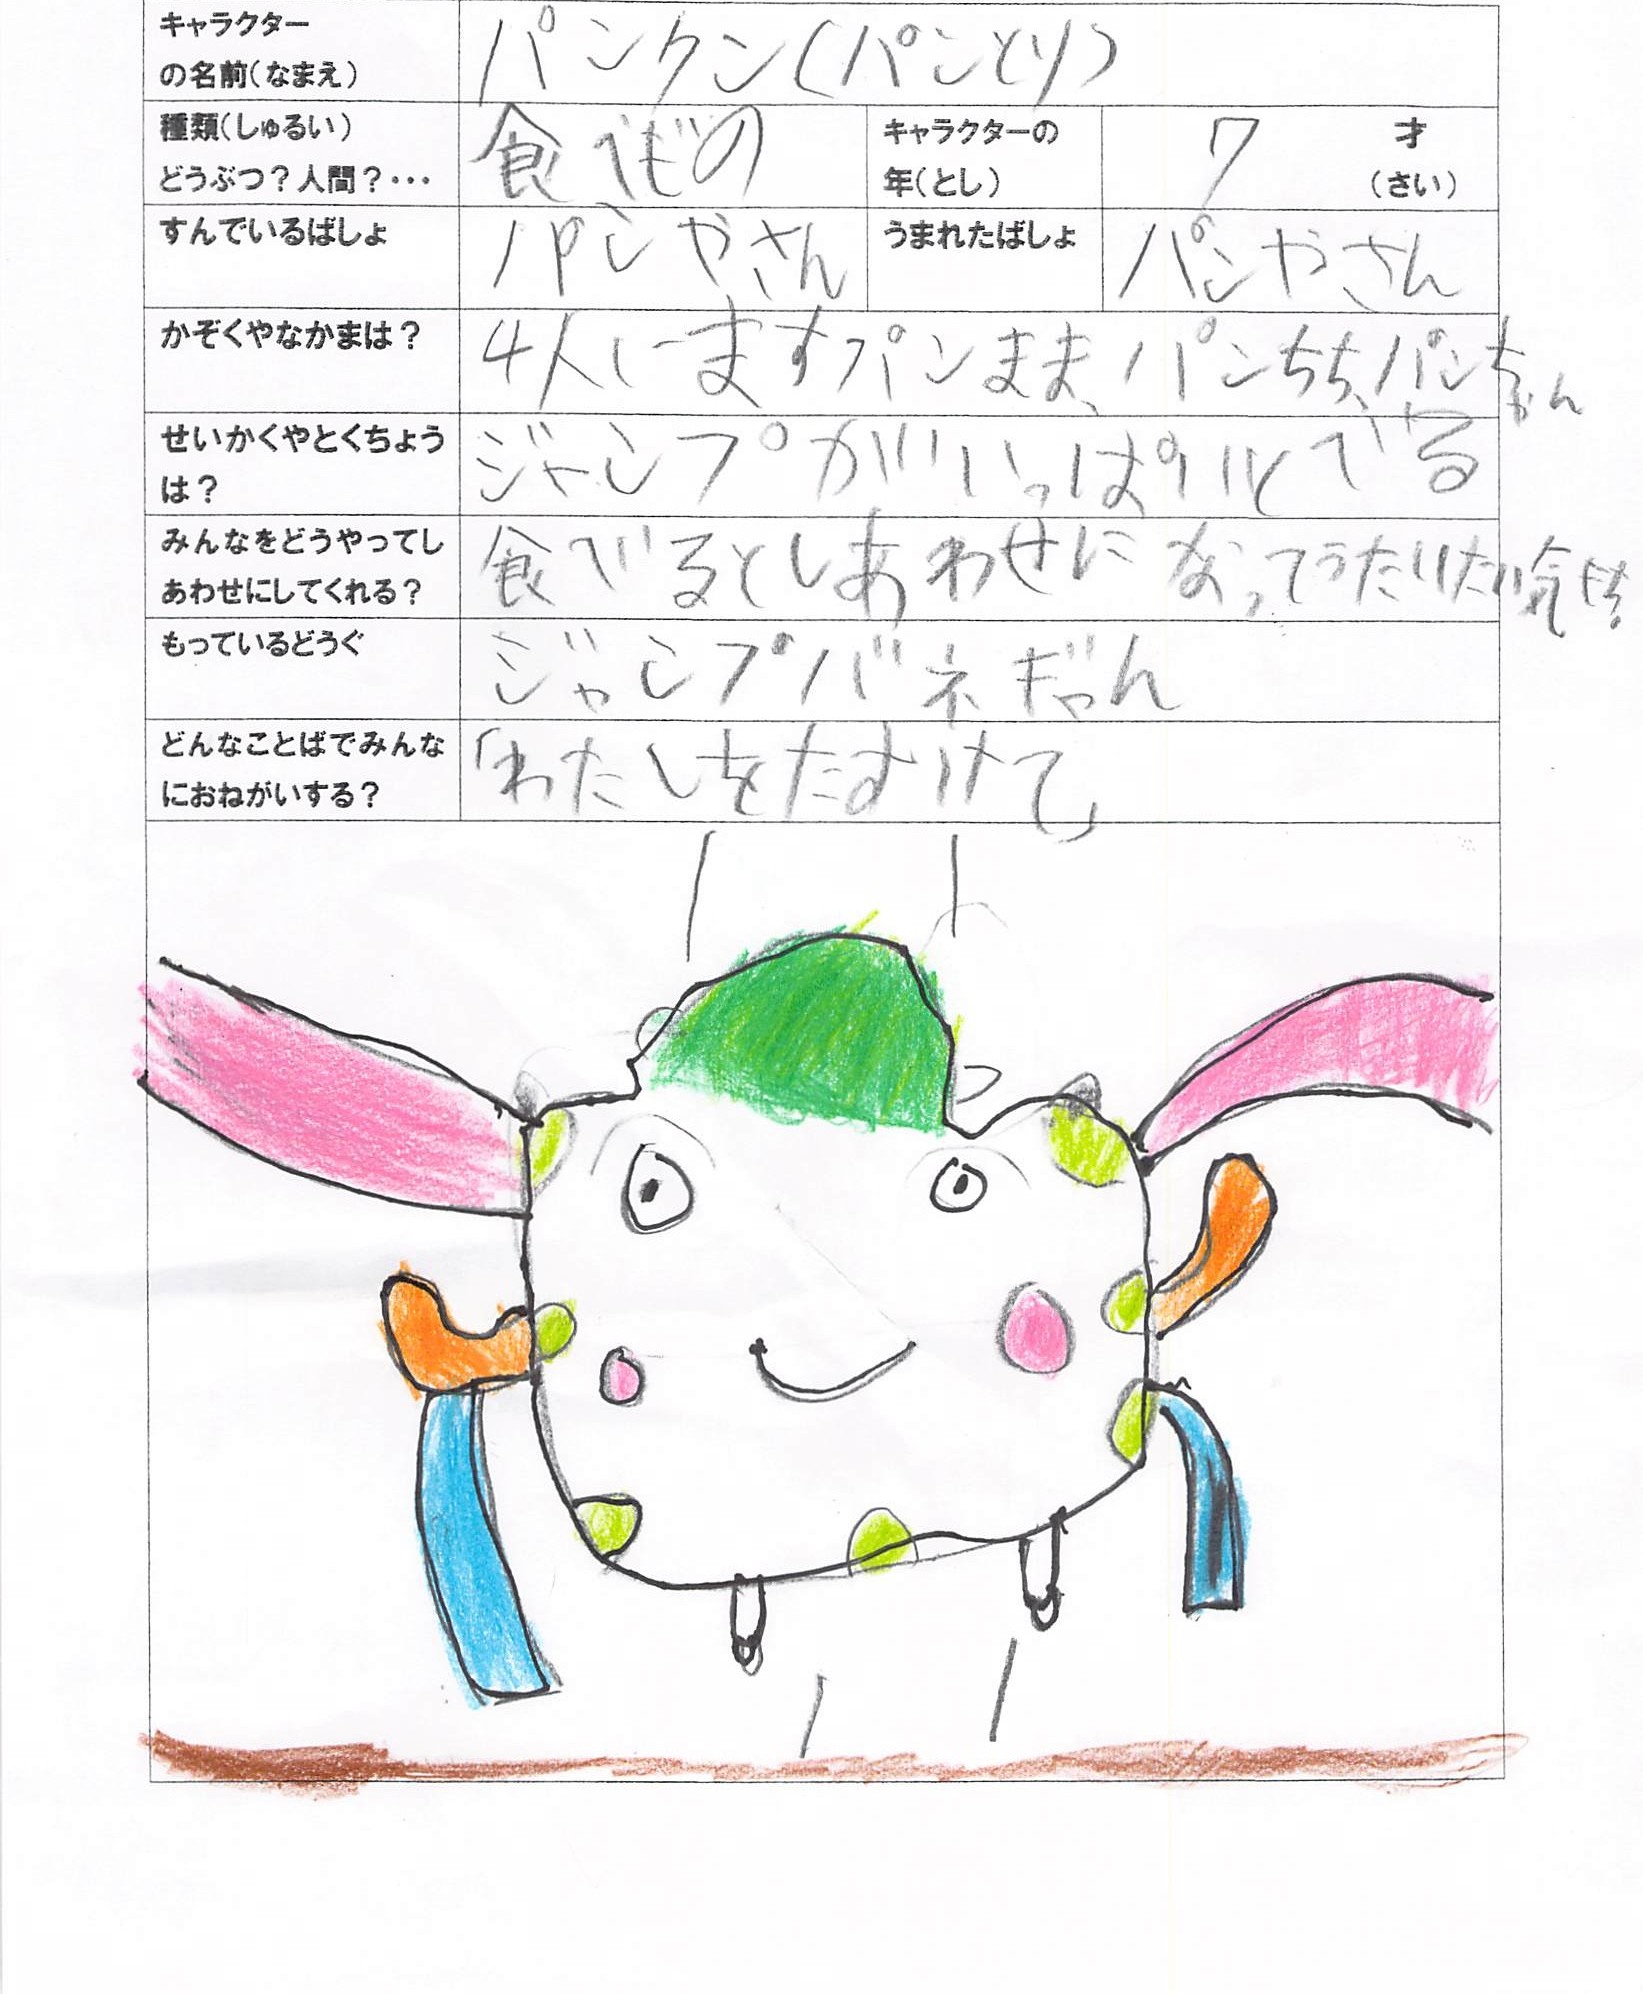 キャラクター
の名前(なまえ)
パンクン(パンとり)
種類(しゅるい)
どうぶつ?人間?・・・
食べもの
キャラクターの
年(とし)
7
才
(さい)
すんでいるばしょ
パンやさん
うまれたばしょ
パンやさん
かぞくやなかまは?
4人いますパンまま、パンちち、パンちゃん
せいかくやとくちょう
は?
ジャンプがいっぱいとべる
みんなをどうやってし
あわせにしてくれる?
食べるとしあわせになってうたいたい気もち
もっているどうぐ
ジャンプバネ
どんなことばでみんな
におねがいする?
「わたしをたすけて」